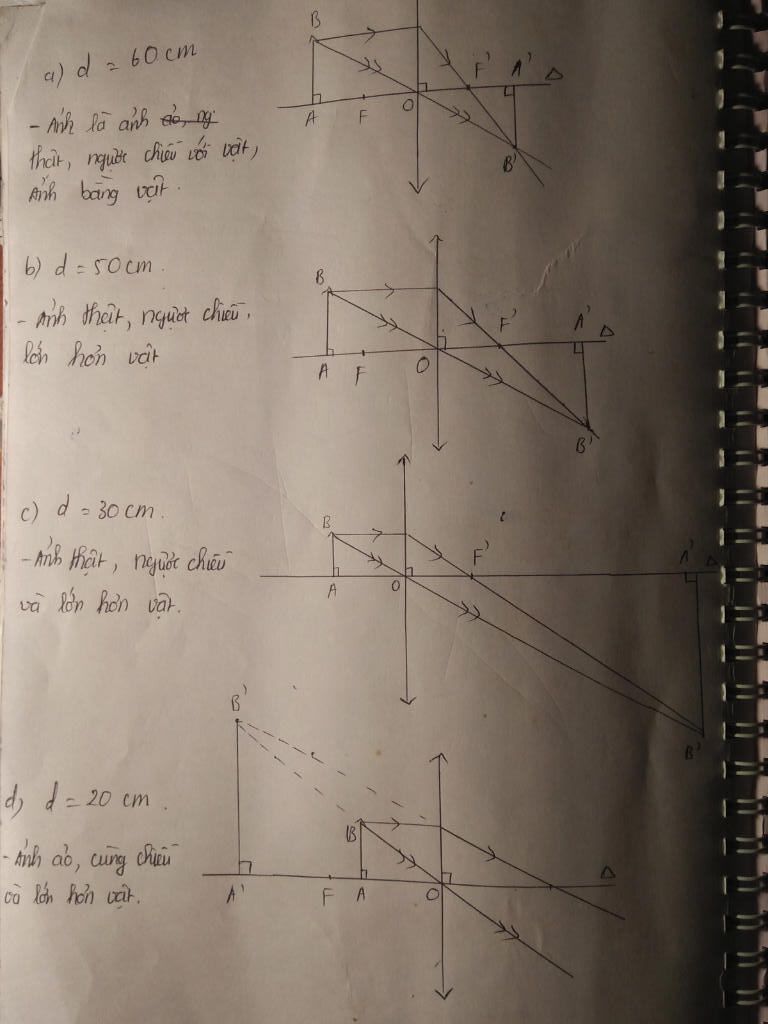 a) d = 60 cm
- Ảnh là ảnh ảo, ng
thật, ngược chiều với vật,
Ảnh bằng vật.
B
F'
A'
Δ
A
F
O
B'
b) d = 50 cm.
- Ảnh thật, ngược chiều,
lớn hơn vật
B
F'
A'
Δ
A
F
O
B'
c) d = 30 cm.
- Ảnh thật, ngược chiều
và lớn hơn vật.
B
F'
A'
Δ
A
O
B'
d) d = 20 cm.
- Ảnh ảo, cùng chiều
và lớn hơn vật.
B'
B
Δ
A'
F
A
O